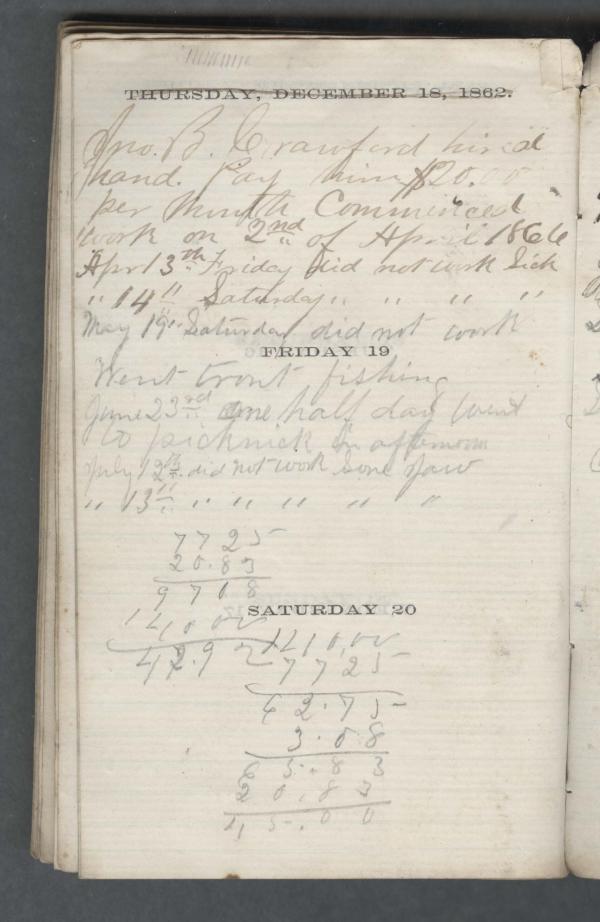 THURSDAY, DECEMBER 18, 1862.
Jno. B. Crawford hired
hand. Pay him $20.00
per Month Commenced
work on 2nd of April 1866
Apr 13th Friday did not work Sick
" 14" Saturday " " " "
May 19" Saturday did not work
FRIDAY 19
Went trout fishing
June 23rd one half day went
to picknick in afternoon
July 12th did not work Sore Jaw
" 13" " " " " "
77 25
20.83
97 08
SATURDAY 20
140.00
42.92
140.00
77 25
62.75
3.08
65.83
20.83
45.00